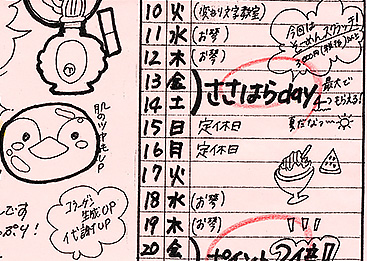 10 火 (変わり文字教室)
11 水 (お琴)
12 木 (お琴)
13 金
14 土
ささはらday
15 日 定休日
16 月 定休日
17 火
18 水 (お琴)
19 木 (お琴)
20 金
ポイント2倍!!
今回は
スクラッチ!
最大で
4つもらえる!
夏だなっ〜
肌のツヤもUP
コラーゲン
生成UP
代謝UP
です
ぷり!